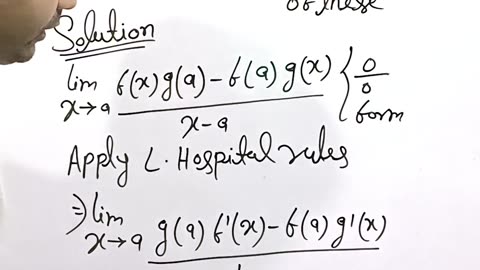 of these
Solution
lim x→a f(x)g(a)-f(a)g(x) / x-a { 0/0 form
Apply L. Hospital rules
⇒ lim x→a g(a)f'(x)-f(a)g'(x)